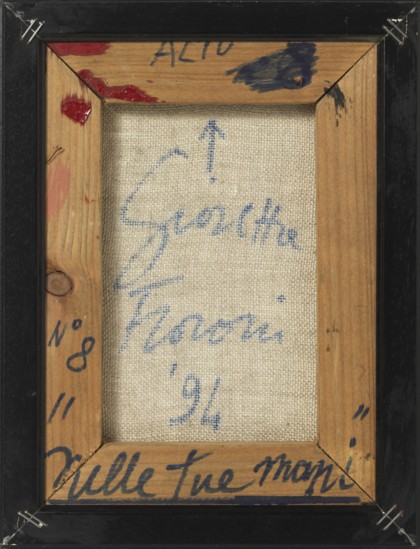 ALTO
↑
Giosetta
Fioroni
'94
N° 8
"Nelle tue mani"